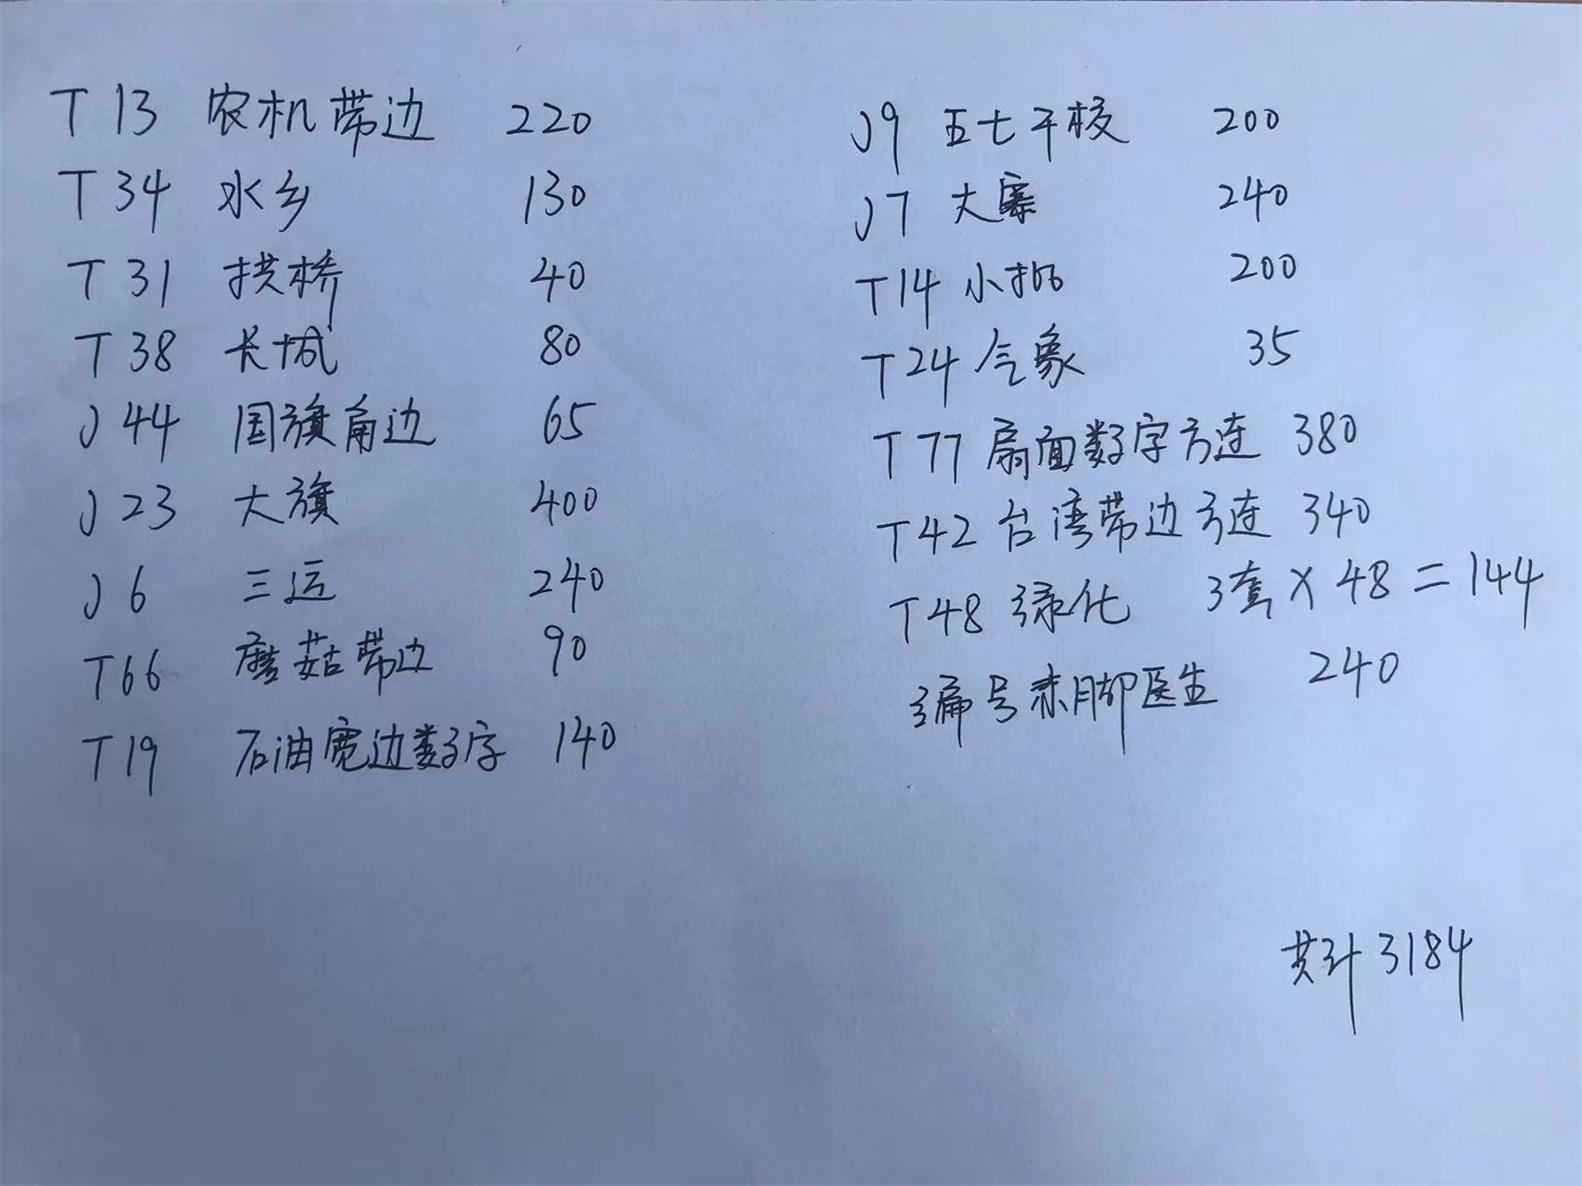 T13 农机带边 220
T34 水乡 130
T31 拱桥 40
T38 长城 80
J44 国旗角边 65
J23 大旗 400
J6 三运 240
T66 蘑菇带边 90
T19 石油宽边数字 140
J9 五七干校 200
J7 大寨 240
T14 小批 200
T24 气象 35
T77 扇面数字方连 380
T42 台湾带边方连 340
T48 绿化 3套X48=144
编号赤脚医生 240
共计3184